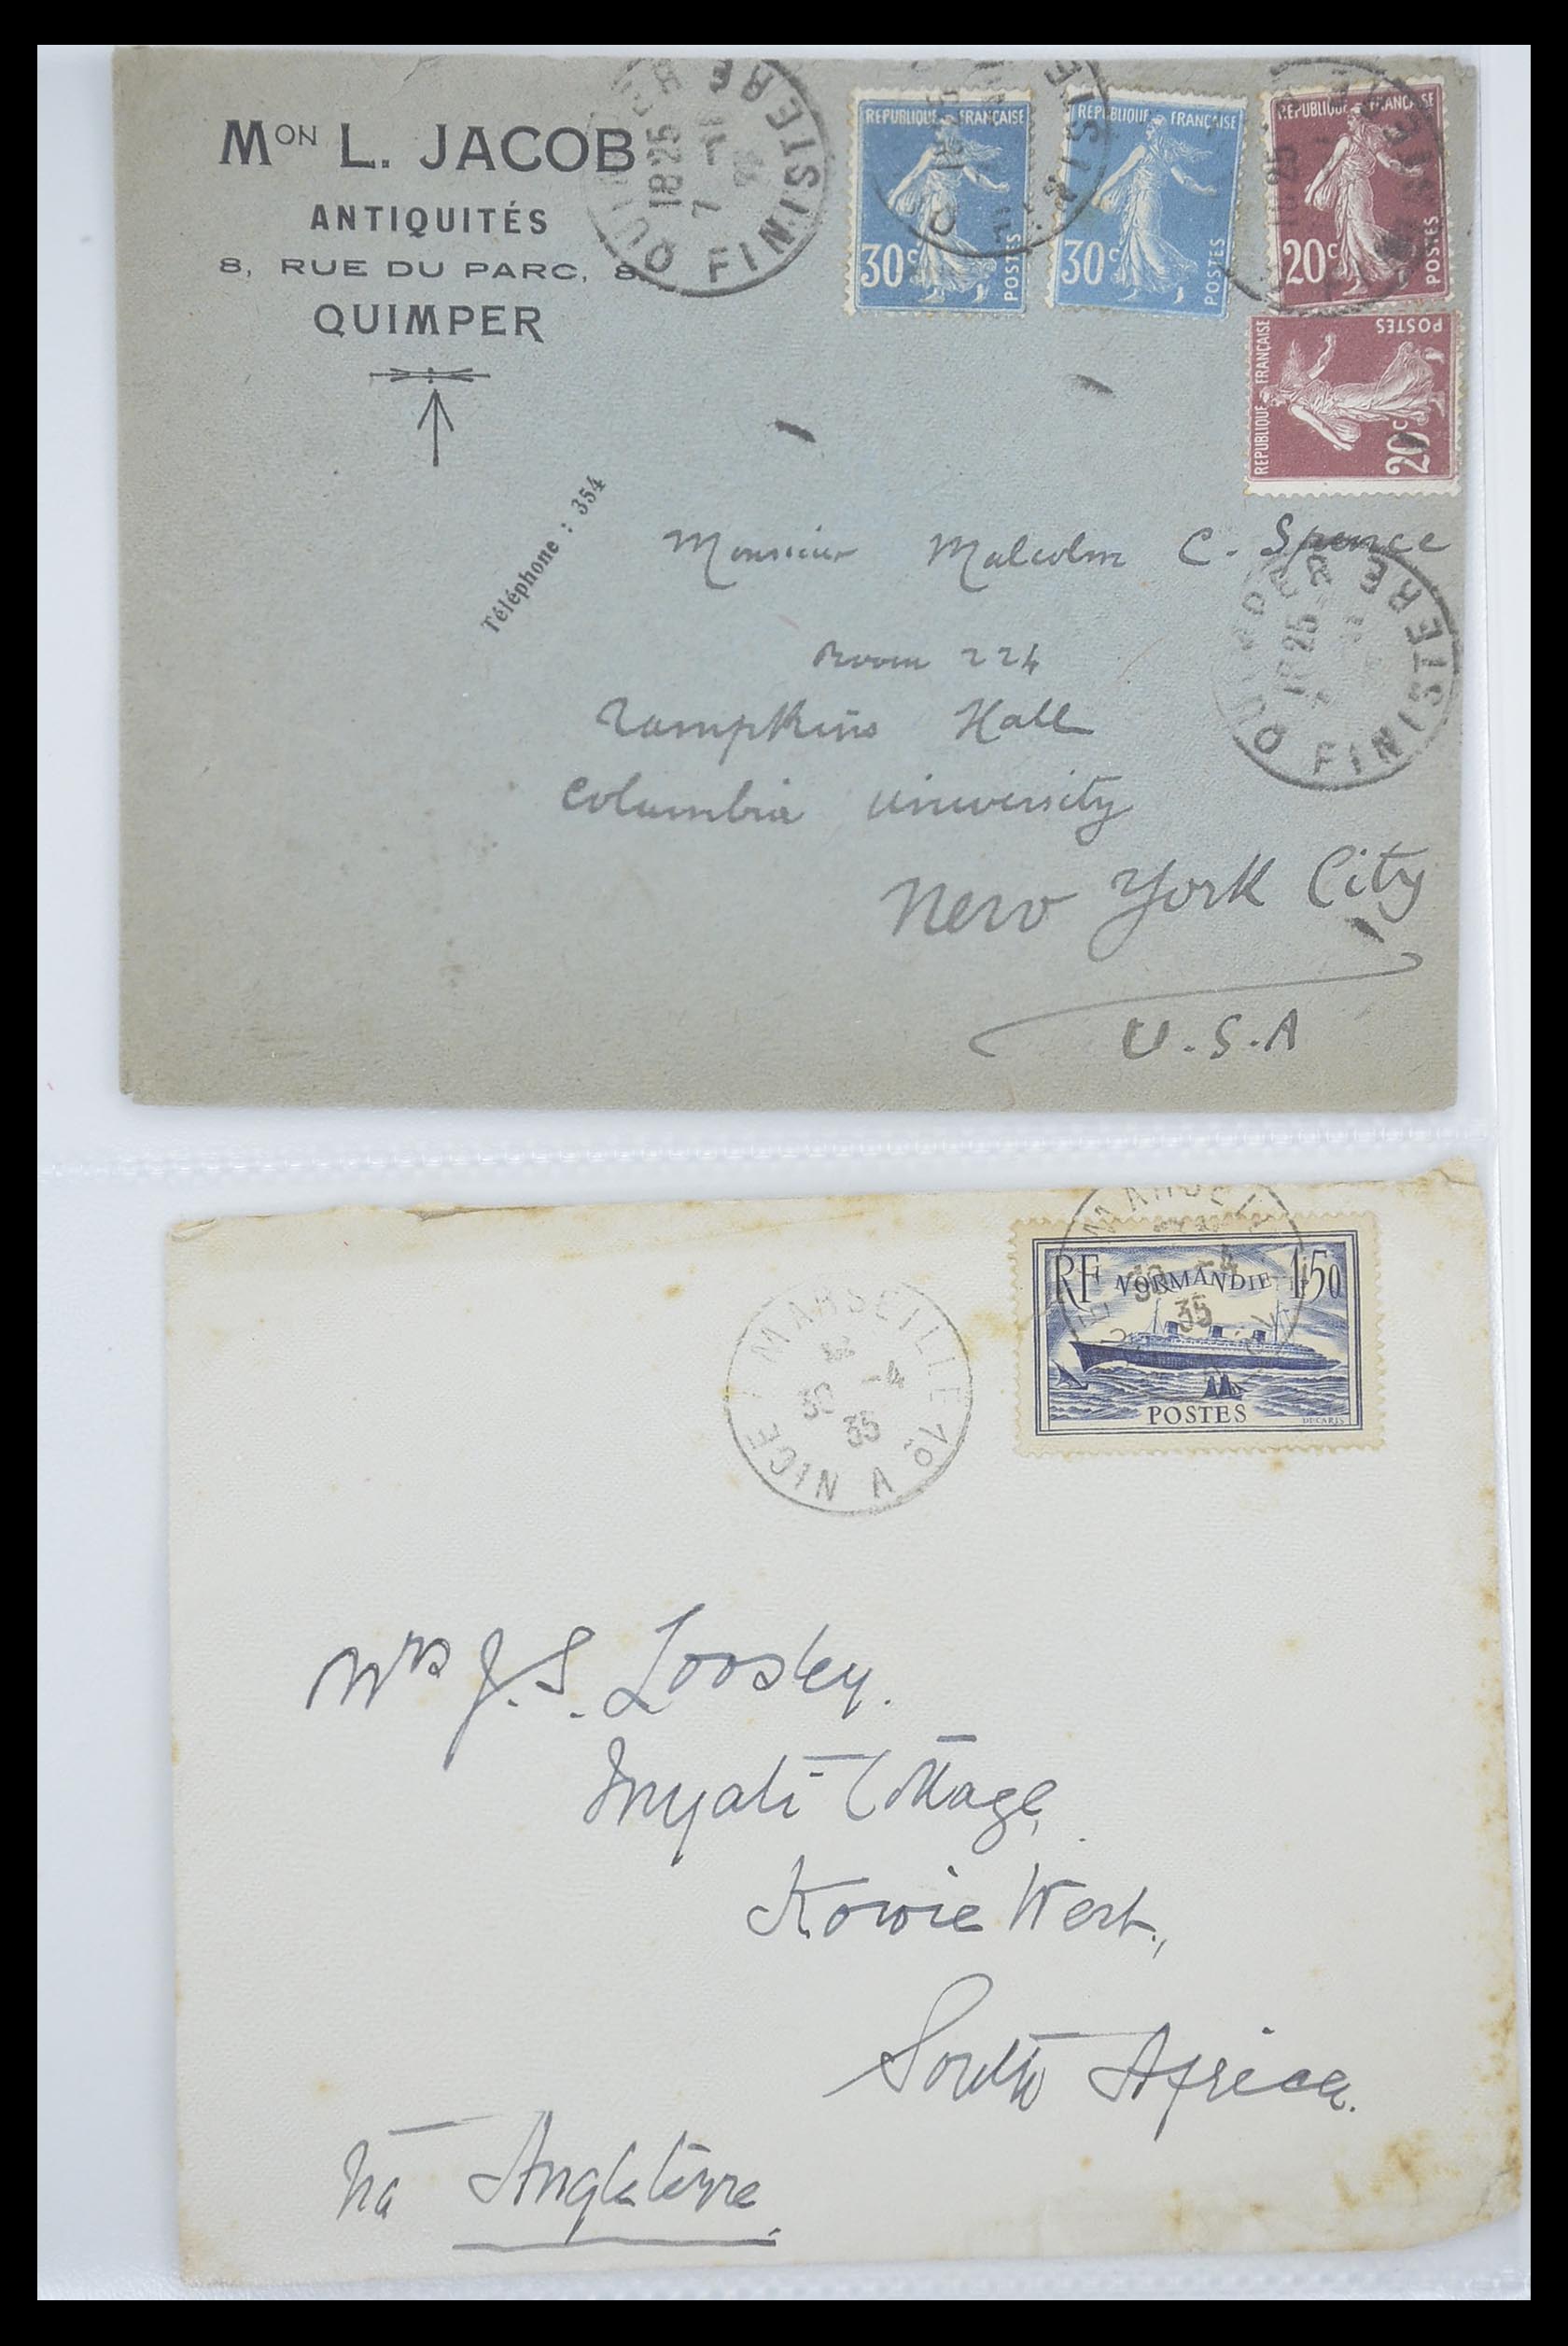 Mᴼᴺ L. JACOB
ANTIQUITÉS
8, RUE DU PARC, 8
QUIMPER
Téléphone : 354
QUIMPER
18 25
7 -11
FINISTERE
REPUBLIQUE FRANÇAISE
30c
POSTES
REPUBLIQUE FRANÇAISE
30c
POSTES
REPUBLIQUE FRANÇAISE
20c
POSTES
REPUBLIQUE FRANÇAISE
20c
POSTES
Monsieur Malcolm C. Spence
Room 224
Lampkins Hall
Columbia University
New York City
U.S.A
QUIMPER
18 25
FINISTERE
MARSEILLE
30 -4
35
NICE A
RF NORMANDIE 1f50
POSTES
DECARIS
MARSEILLE
30 -4
35
Mrs J. S. Loosley.
Inyati Cottage,
Kowie West,
South Africa.
via Angleterre.